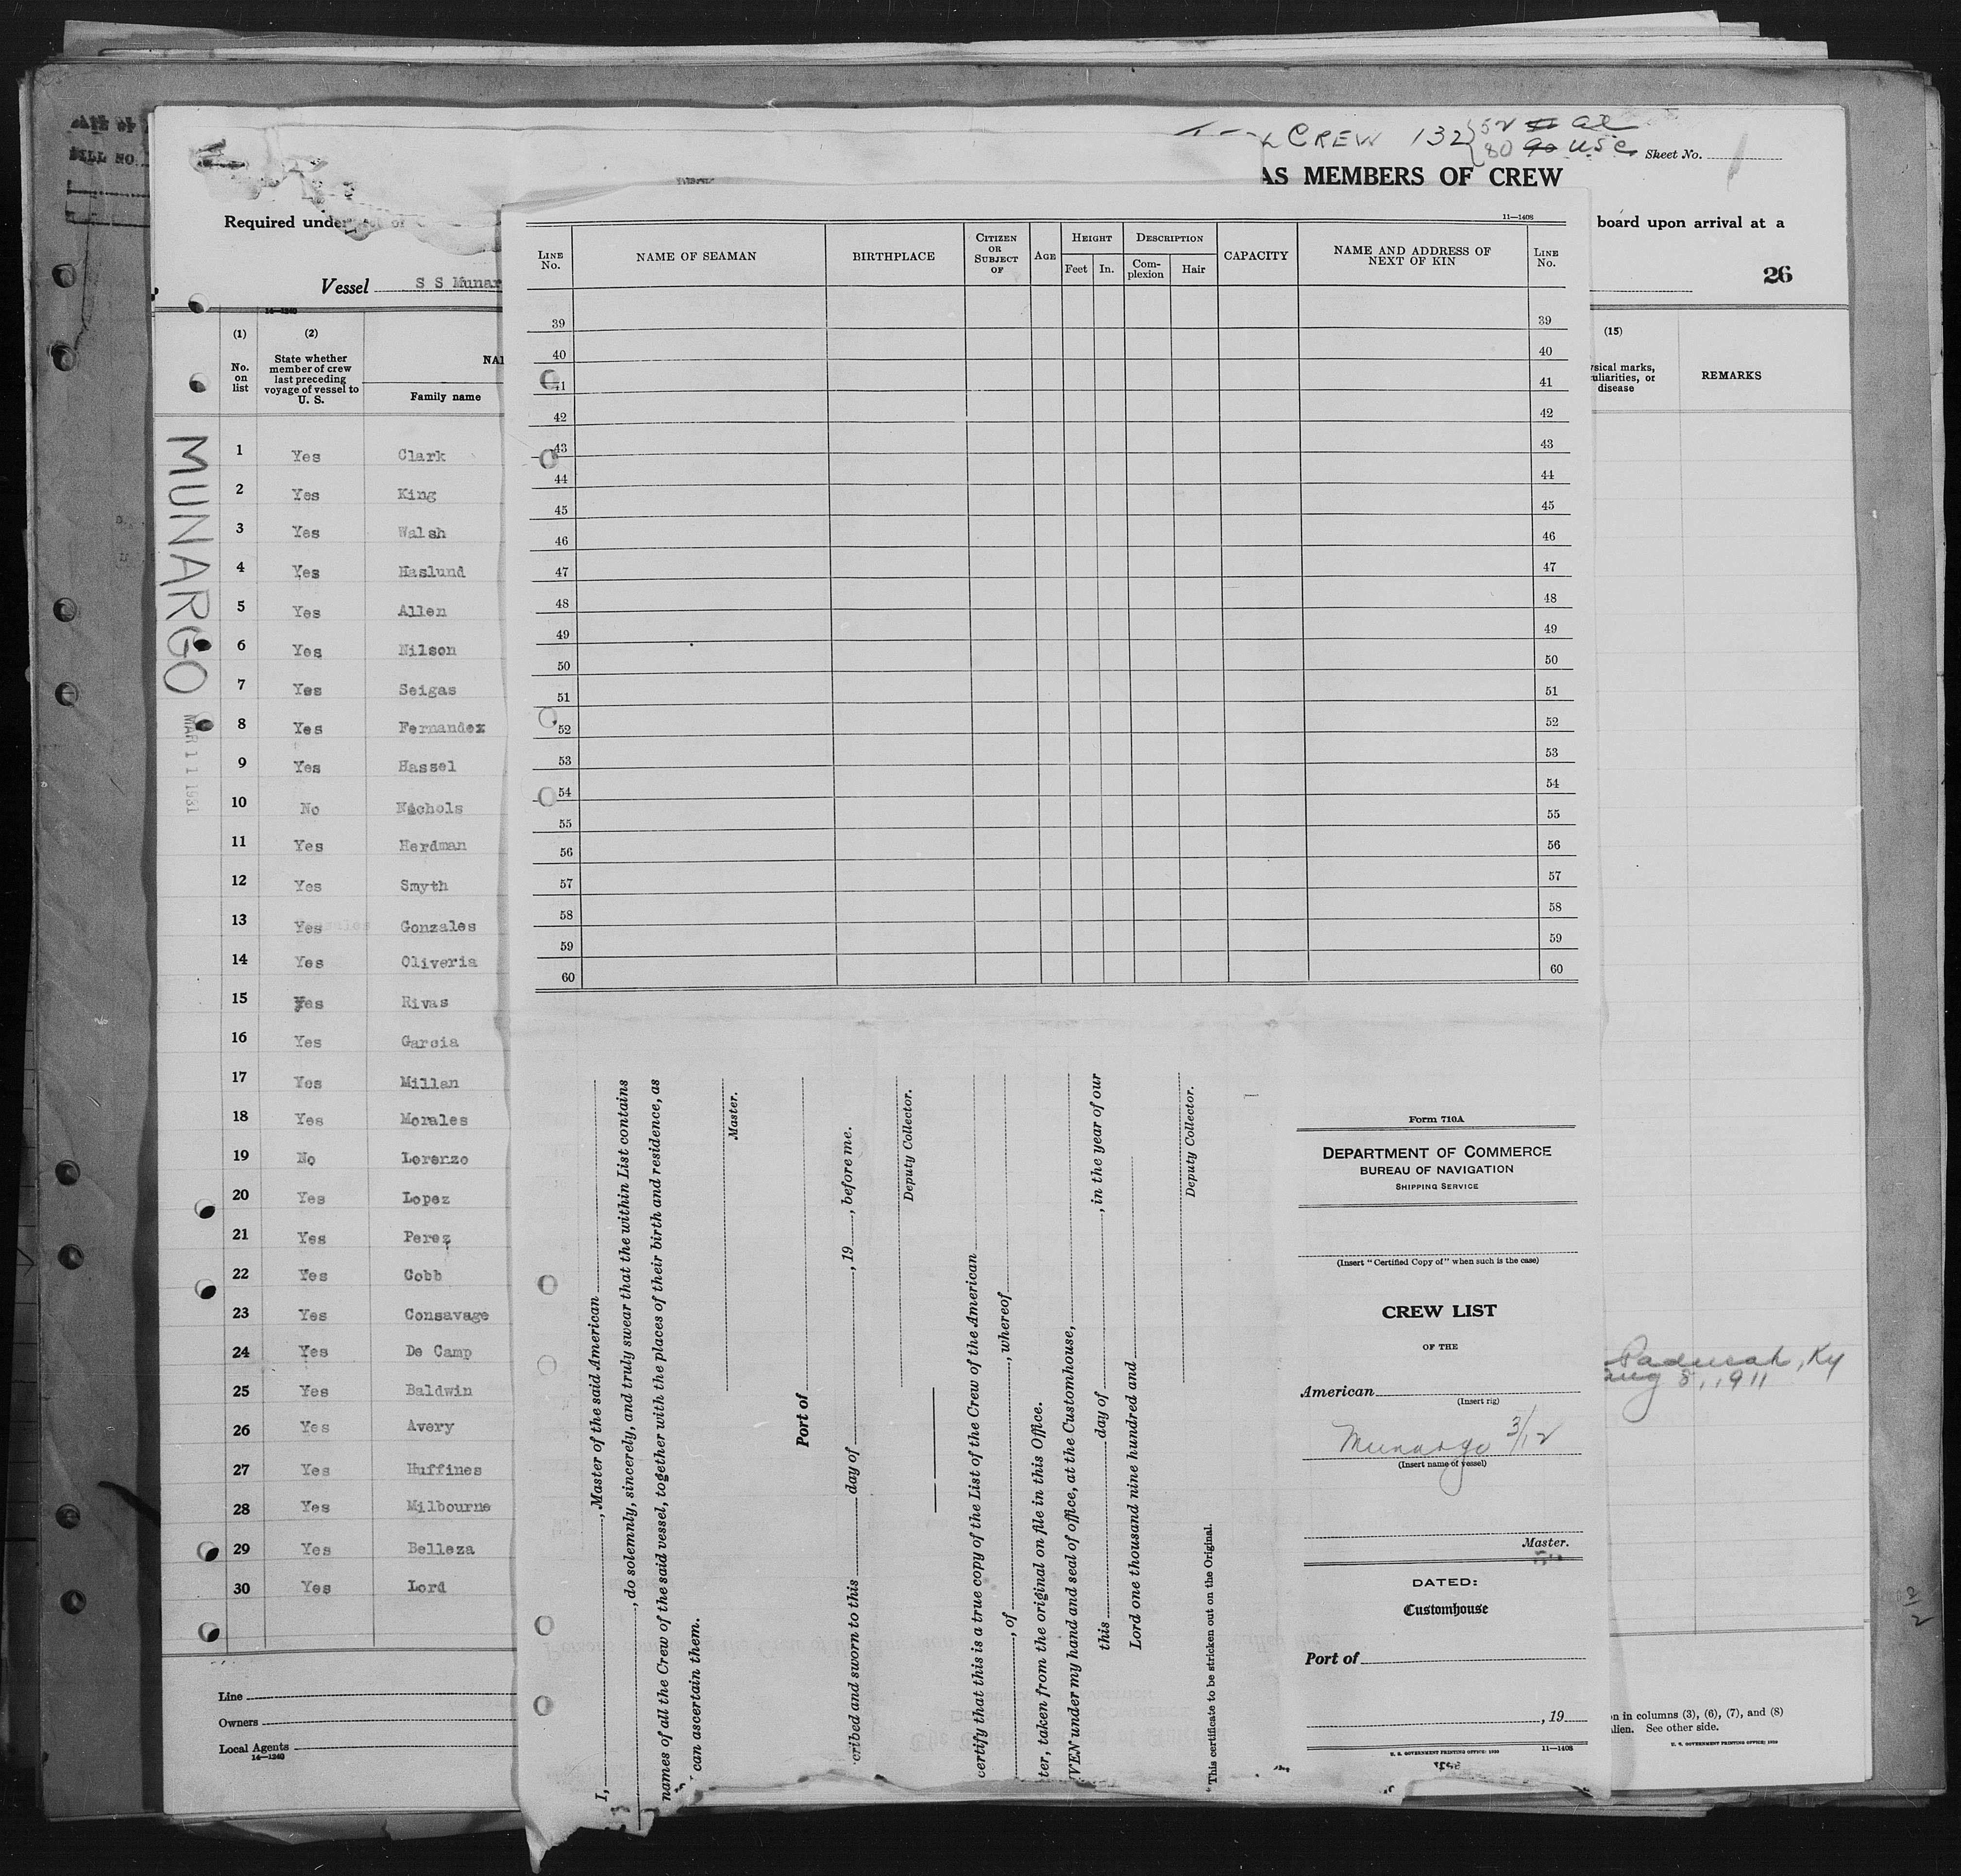 CREW 132 { 52 al
80 USC
Sheet No. 1
AS MEMBERS OF CREW
Required under
board upon arrival at a
Vessel S S Munar
26
14—1240
(1) (2) (15)
No. on list
State whether member of crew last preceding voyage of vessel to U. S.
Family name
REMARKS
MUNARGO
MAR 11 1931
1 Yes Clark
2 Yes King
3 Yes Walsh
4 Yes Haslund
5 Yes Allen
6 Yes Nilson
7 Yes Seigas
8 Yes Fernandez
9 Yes Hassel
10 No Nichols
11 Yes Herdman
12 Yes Smyth
13 Yes Gonzales
14 Yes Oliveria
15 Yes Rivas
16 Yes Garcia
17 Yes Millan
18 Yes Morales
19 No Lorenzo
20 Yes Lopez
21 Yes Perez
22 Yes Cobb
23 Yes Consavage
24 Yes De Camp
25 Yes Baldwin
26 Yes Avery
27 Yes Huffines
28 Yes Milbourne
29 Yes Belleza
30 Yes Lord
Line
Owners
Local Agents
14—1240
11—1408
LINE No.
NAME OF SEAMAN
BIRTHPLACE
CITIZEN OR SUBJECT OF
AGE
HEIGHT
Feet In.
DESCRIPTION
Com-plexion Hair
CAPACITY
NAME AND ADDRESS OF NEXT OF KIN
LINE No.
39 39
40 40
41 41
42 42
43 43
44 44
45 45
46 46
47 47
48 48
49 49
50 50
51 51
52 52
53 53
54 54
55 55
56 56
57 57
58 58
59 59
60 60
I, , Master of the said American
, do solemnly, sincerely, and truly swear that the within List contains
names of all the Crew of the said vessel, together with the places of their birth and residence, as
can ascertain them.
Master.
Port of
cribed and sworn to this day of , 19 , before me.
Deputy Collector.
certify that this is a true copy of the List of the Crew of the American
, of , whereof
ter, taken from the original on file in this Office.
VEN under my hand and seal of office, at the Customhouse,
this day of , in the year of our
Lord one thousand nine hundred and
Deputy Collector.
*This certificate to be stricken out on the Original.
Form 710A
DEPARTMENT OF COMMERCE
BUREAU OF NAVIGATION
SHIPPING SERVICE
(Insert "Certified Copy of" when such is the case)
CREW LIST
OF THE
American
(Insert rig)
Munargo 3/12
(Insert name of vessel)
Master.
DATED:
Customhouse
Port of
, 19
U. S. GOVERNMENT PRINTING OFFICE: 1930 11—1408
sical marks,
uliarities, or
disease
Paducah, Ky
Aug 8, 1911
n in columns (3), (6), (7), and (8)
lien. See other side.
U. S. GOVERNMENT PRINTING OFFICE: 1930
BILL NO.